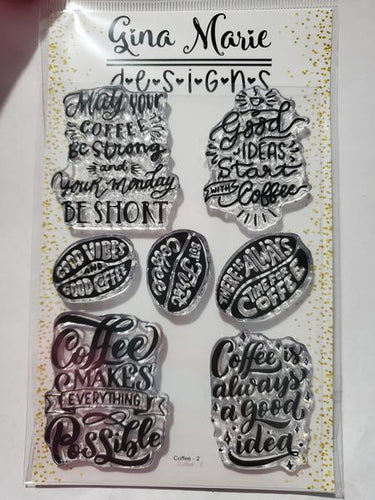 Gina Marie
designs
May your
COFFEE
Be Strong
and
Your Monday
BE SHORT
Good
IDEAS
Start
WITH
Coffee
GOOD VIBES
AND
GOOD COFFEE
But First
Coffee
THERE'S ALWAYS
TIME FOR
COFFEE
Coffee
MAKES
EVERYTHING
Possible
Coffee is
always
a good
idea
Coffee - 2